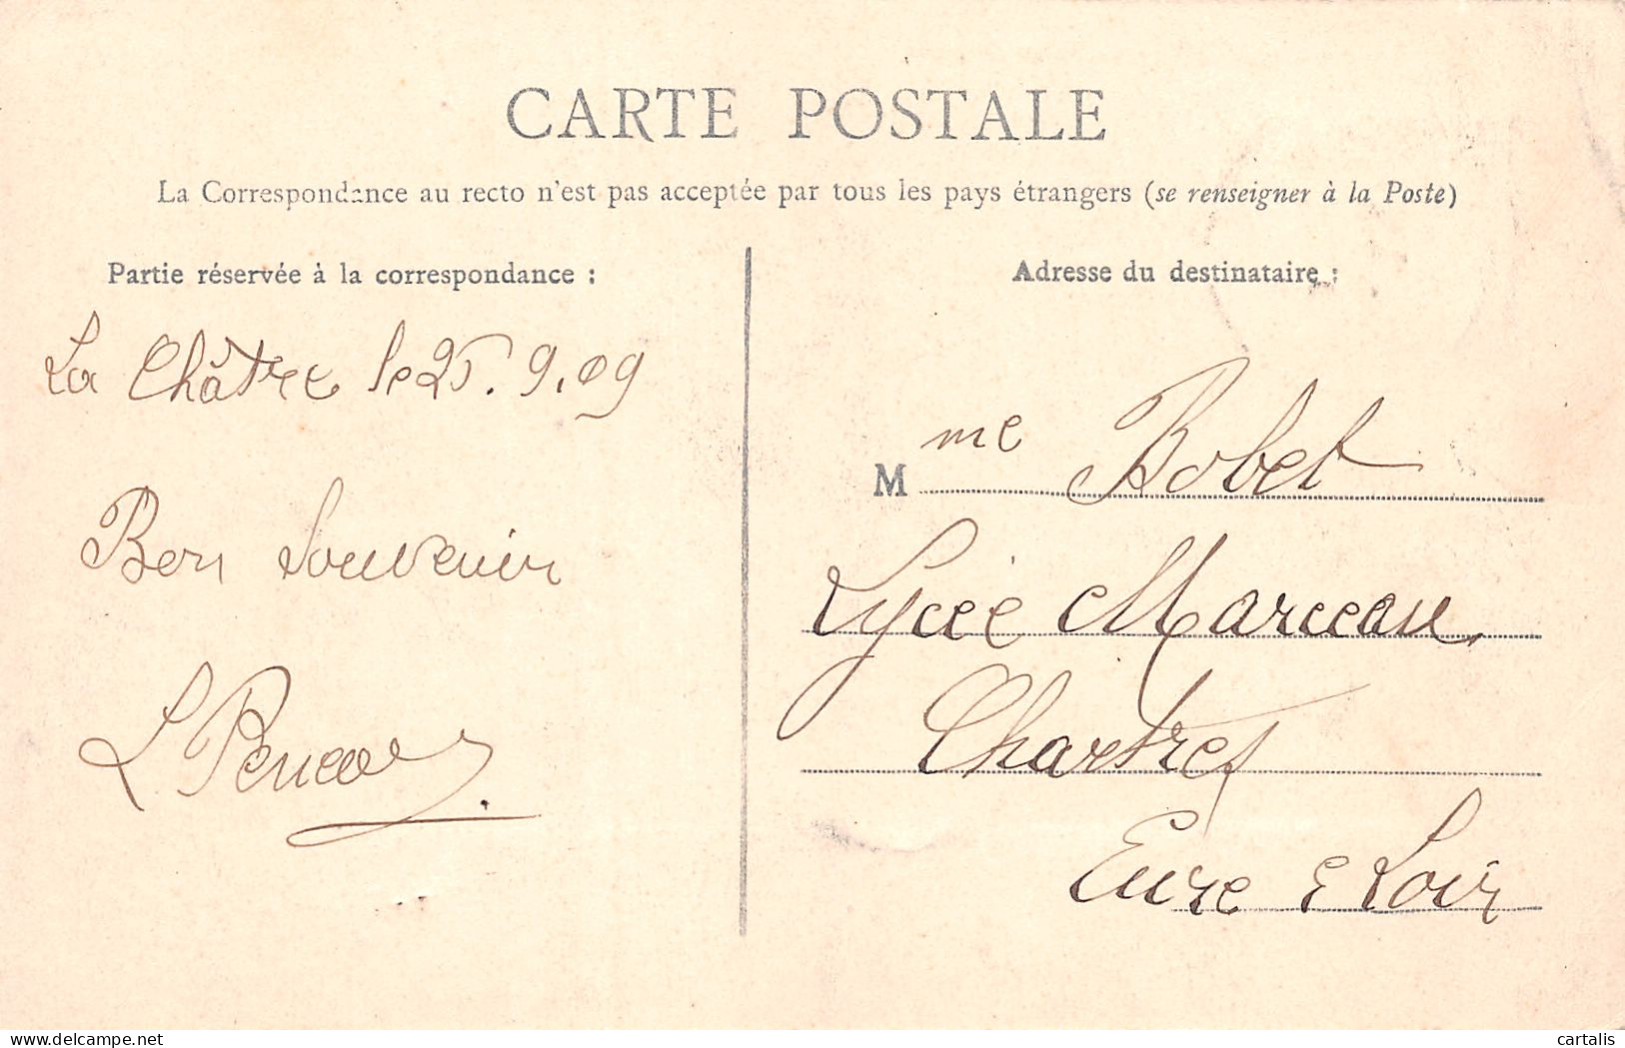 CARTE POSTALE
La Correspondance au recto n'est pas acceptée par tous les pays étrangers (se renseigner à la Poste)
Partie réservée à la correspondance :
La Châtre le 25. 9. 09
Bon Souvenir
L
Adresse du destinataire :
Mme Bobet
Lycée Marceau
Chartres
Eure & Loir
delcampe.net
cartalis